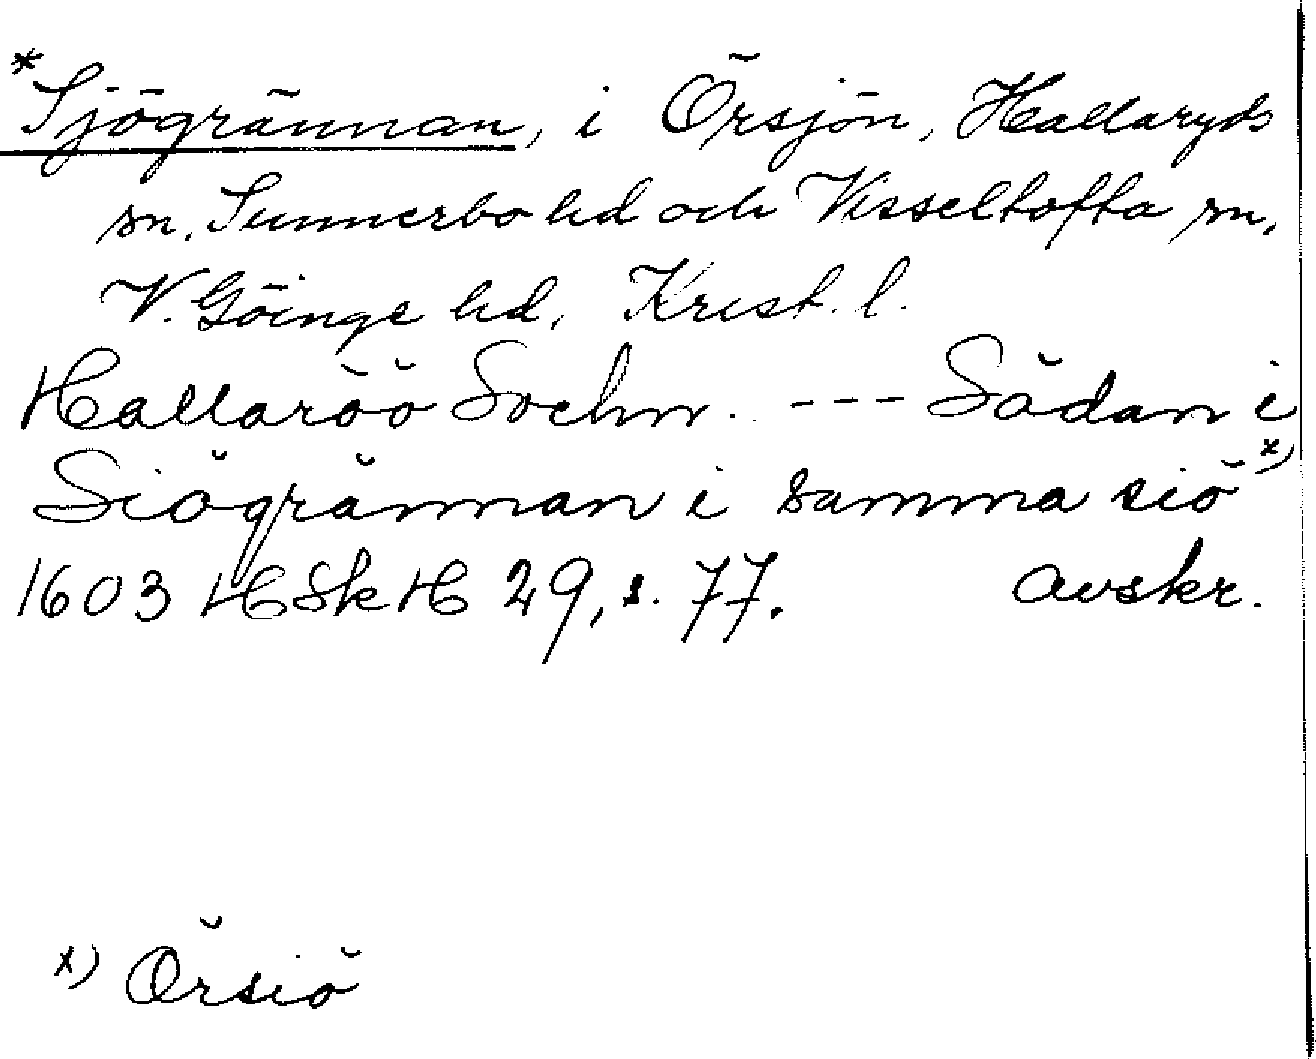 *Sjögrännan, i Örsjön, Hallaryds
sn, Sunnerbo hd och Visseltofta sn,
V. Göinge hd, Krist. l.
Hallaröö Sochn. --- Sådan i
Siögrännan i samma siö x)
1603 HSkH 29, s. 77. avskr.
x) Örsiö